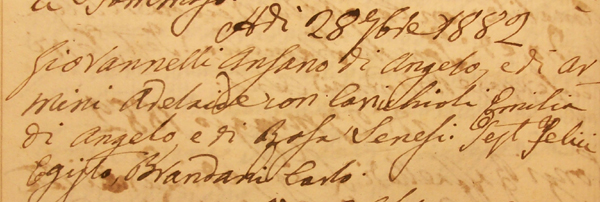 di Tommaso.
Adì 28 9bre 1882
Giovannelli Ansano di Angelo, e di Ar
mini Adelaide con Carichioli Emilia
di Angelo, e di Rosa Senesi. Test Felici
Egisto, Brandani Carlo.